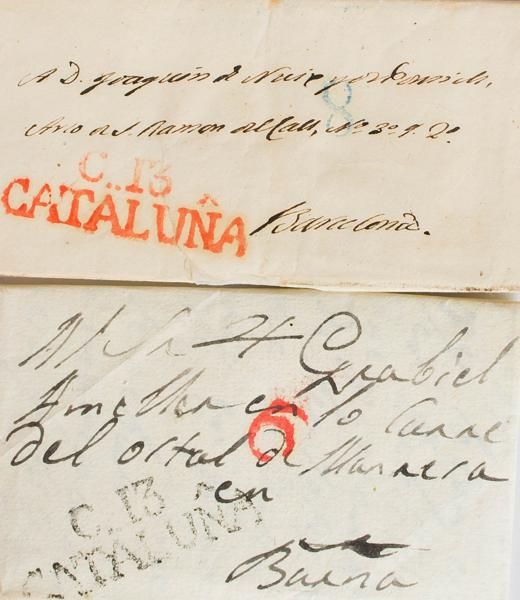 A D. Joaquin de
8
Arco de S. Ramon del Call, Nº 3º 9. 2º
C. 13
CATALUÑA
Barcelona.
Al Sr
Grabiel
Ameller en lo Carré
6
del ostal de Manresa
en
C. 13
CATALUÑA
Barna